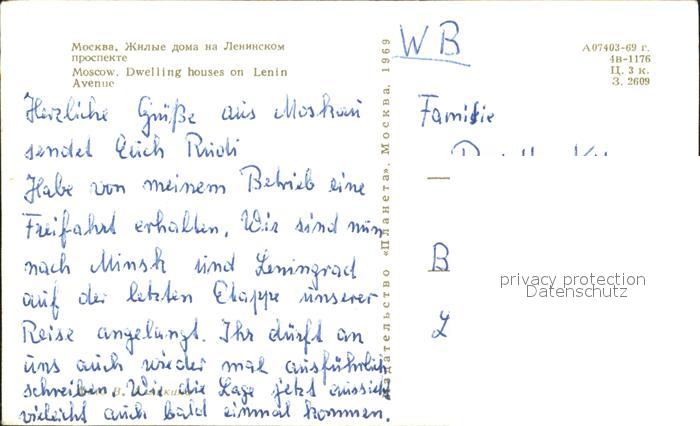 Москва. Жилые дома на Ленинском
проспекте
Moscow. Dwelling houses on Lenin
Avenue
Herzliche Grüße aus Moskau
sendet Euch Rudi
Habe von meinem Betrieb eine
Freifahrt erhalten. Wir sind nun
nach Minsk und Leningrad
auf der letzten Etappe unserer
Reise angelangt. Ihr dürft an
uns auch wieder mal ausführlich
schreiben. Wie die Lage jetzt aussieht
vieleicht auch bald einmal kommen.
Издательство «Планета». Москва. 1969
WB
А07403-69 г.
4в-1176
Ц. 3 к.
З. 2609
Familie
B
L
privacy protection
Datenschutz